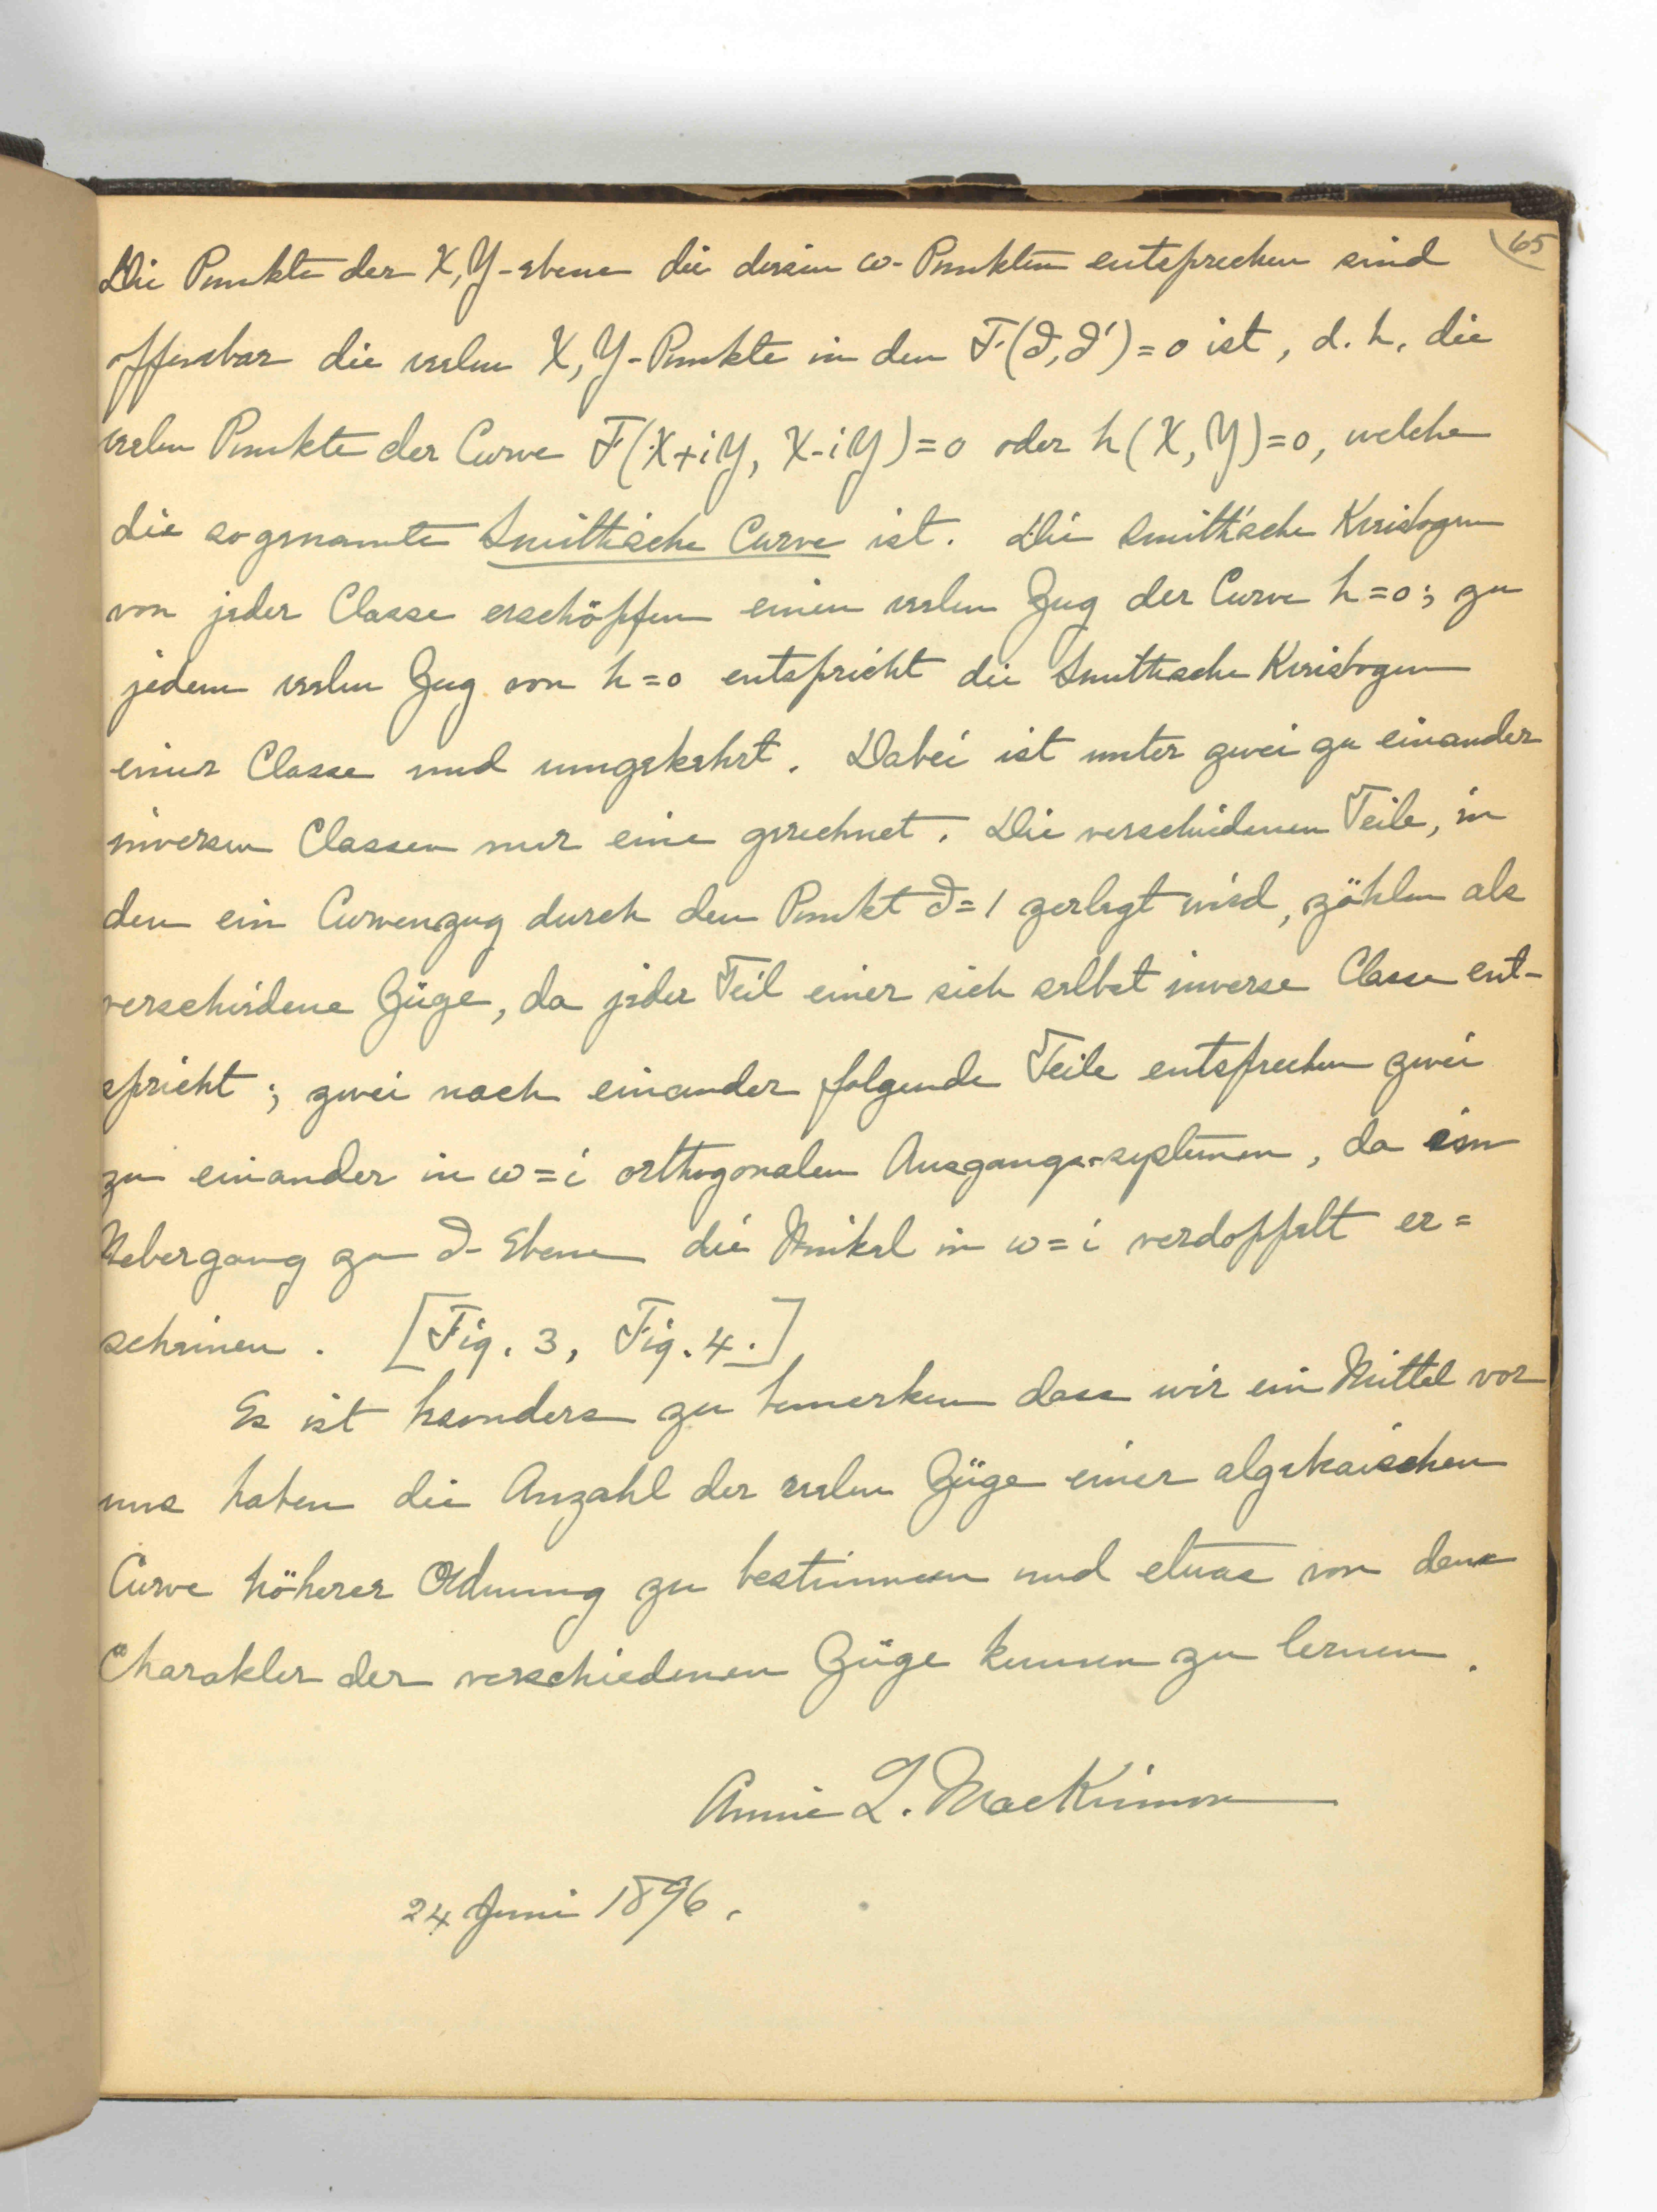 65
Die Punkte der X, Y-ebene die diesen ω-Punkten entsprechen sind
offenbar die reelen X, Y-Punkte in den F(∂,∂')=0 ist, d. h. die
reelen Punkte der Curve F(X+iY, X-iY)=0 oder h(X, Y)=0, welche
die sogenannte Smithische Curve ist. Die Smith'sche Kreisbogen
von jeder Classe erschöpfen einen reelen Zug der Curve h=0; zu
jedem reelen Zug von h=0 entspricht die Smithsche Kreisbogen
einer Classe und umgekehrt. Dabei ist unter zwei zu einander
inversen Classen nur eine gerechnet. Die verschiedenen Teile, in
den ein Curvenzug durch den Punkt ∂=1 zerlegt wird, zählen als
verschiedene Züge, da jeder Teil einer sich selbst inverse Classe ent-
spricht; zwei nach einander folgende Teile entsprechen zwei
zu einander in ω=i orthogonalen Ausgangs-systemen, da im
Uebergang zu ∂-Ebene die Winkel in ω=i verdoppelt er=
scheinen. [Fig. 3, Fig. 4.]
Es ist besonders zu bemerken dass wir ein Mittel vor
uns haben die Anzahl der reelen Züge einer algebraischen
Curve höherer Ordnung zu bestimmen und etwas von dem
Charakter der verschiedenen Züge kennen zu lernen.
Annie L. MacKinnon
24 Juni 1896.